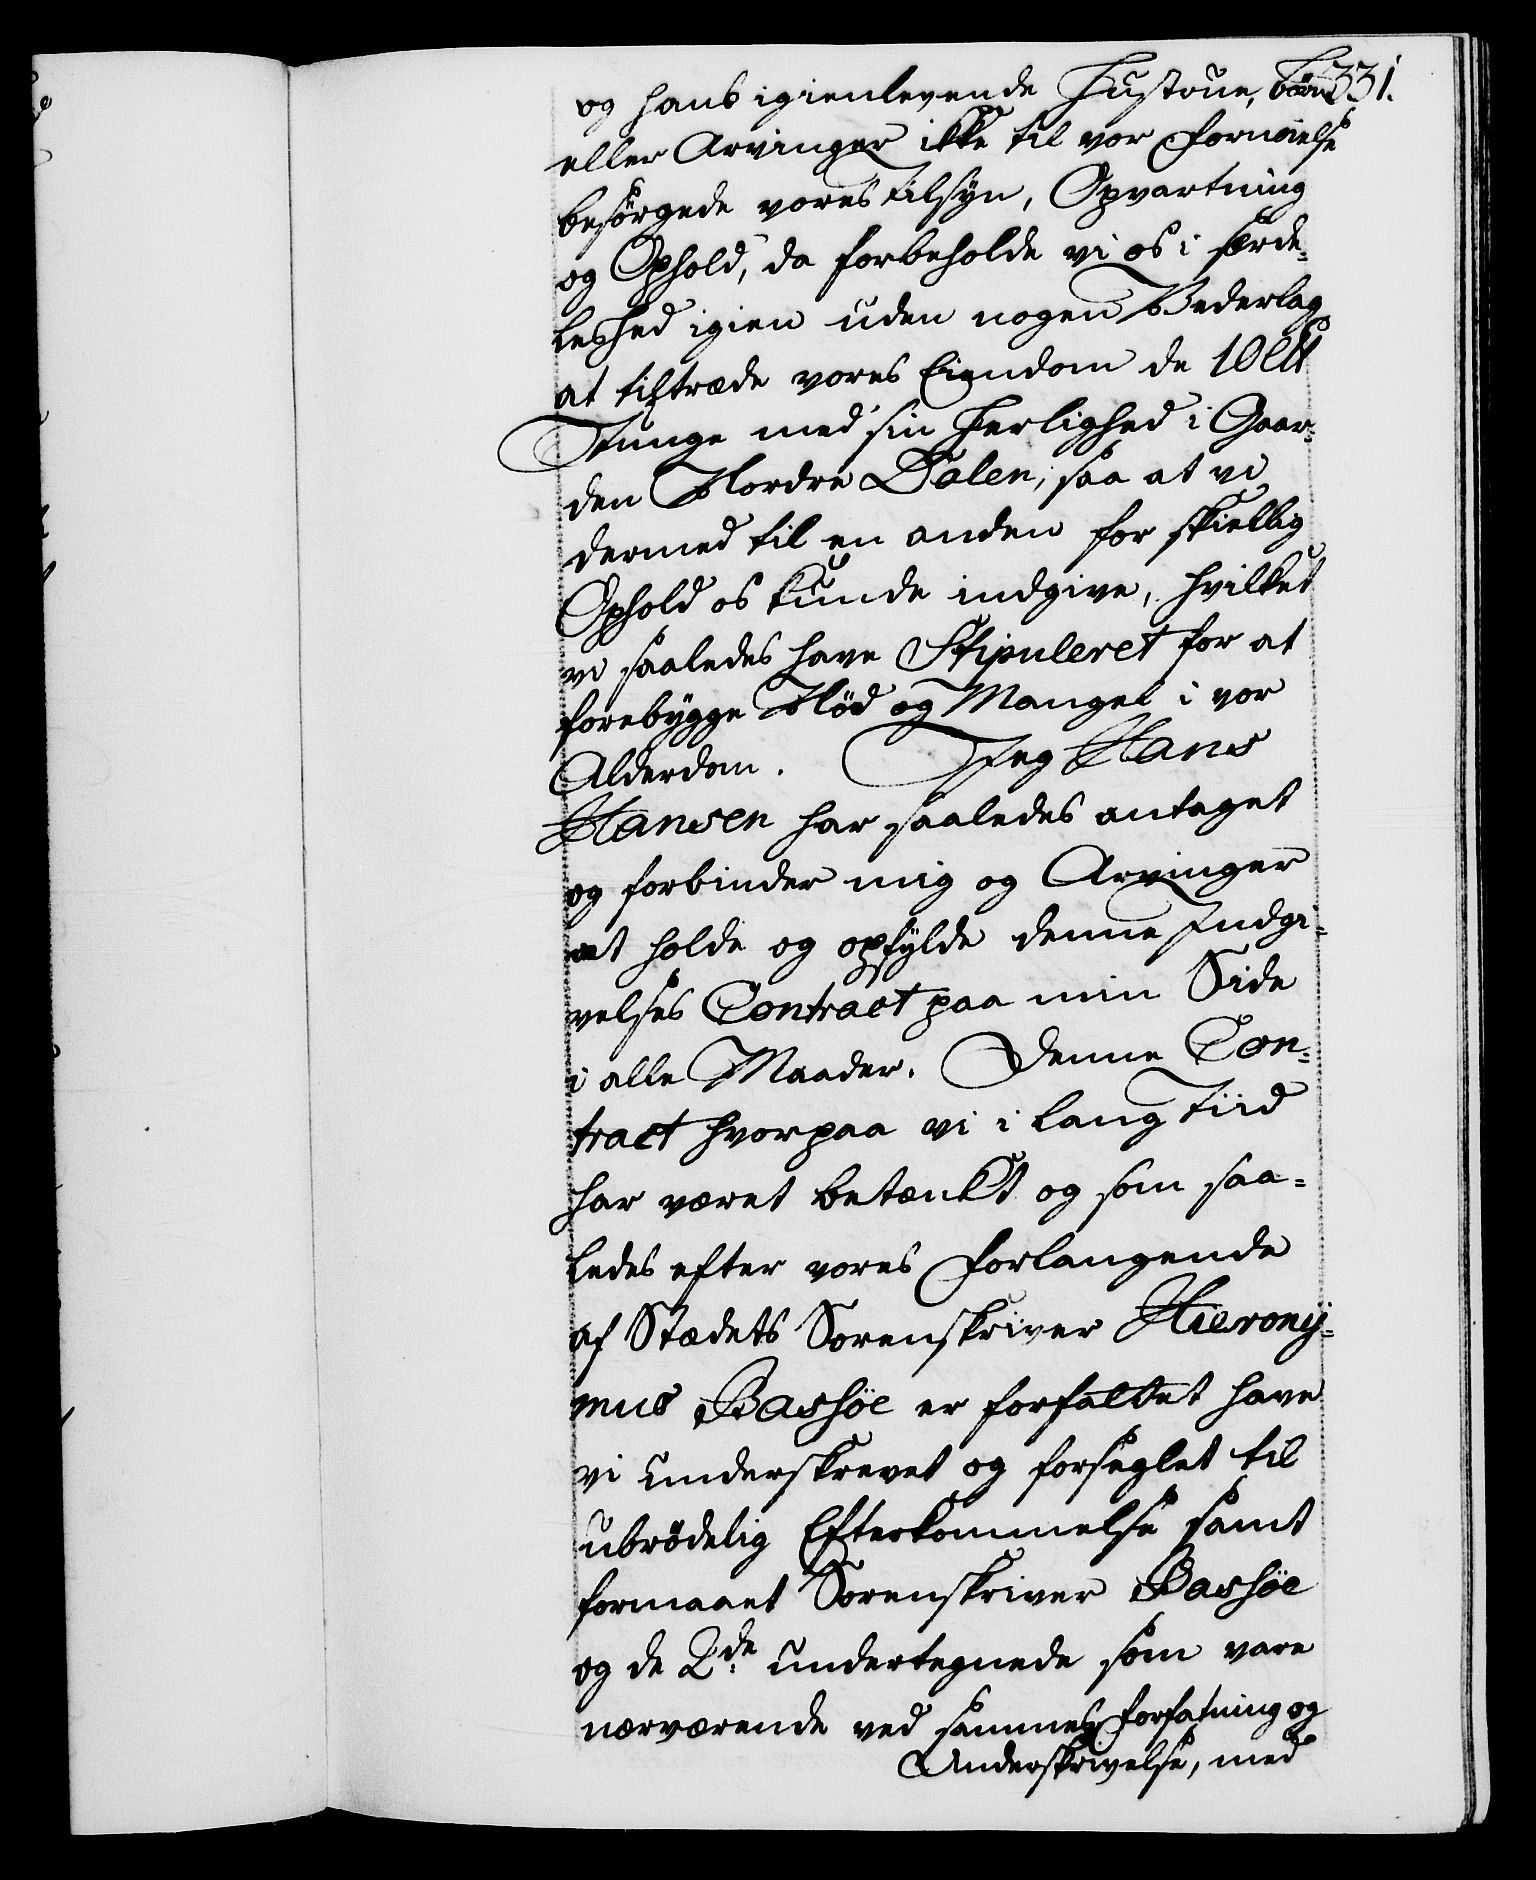 331.
og hans igienlevende Hustrue, Børn
eller Arvinger ikke til vor Fornøielse
besørgede vores Tilsyn, Opvartning
og Ophold, da forbeholde vi os i særde-
leshed igien uden nogen Vederlag
at tiltræde vores Eiendom de 10
Tunge med sin Herlighed i Gaar-
den Nordre Dalen, saa at vi
dermed til en anden for skiellig
Ophold os kunde indgive, hvilket
vi saaledes have Stipuleret for at
forebygge Nød og Mangel i vor
Alderdom. Jeg Hans
Hansen har saaledes antaget
og forbinder mig og Arvinger
at holde og opfylde denne Indgi-
velses Contract paa min Side
i alle Maader. Denne Con-
tract hvorpaa vi i lang Tiid
har været betænkt og som saa-
ledes efter vores Forlangende
af Stædets Sorenskriver Hierony-
mus Bassøe er forfattet have
vi underskrevet og forseglet til
ubrødelig Efterkommelse samt
formaaet Sorenskriver Bassøe
og de 2de undertegnede som vare
nærværende ved sammes Forfatning og
Underskrivelse, med